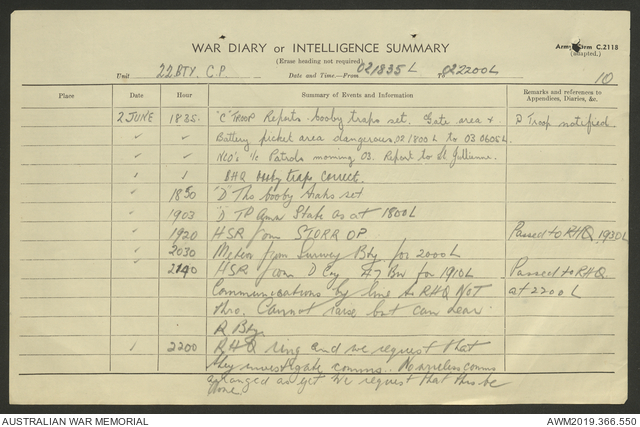 WAR DIARY or INTELLIGENCE SUMMARY
Army Form C.2118
(adapted.)
(Erase heading not required)
Unit 22 BTY. C.P. Date and Time—From 021835 L To 022200 L
10
Place Date Hour Summary of Events and Information Remarks and references to Appendices, Diaries, &c.
2 JUNE 1835. "C" TROOP Reports booby traps set. Gate area & D Troop notified.
Battery picket area dangerous, 021800 L to 03 0605 L.
NCO's i/c Patrols morning 03. Report to Lt
BHQ booby traps correct.
1850 "D" Tps booby traps set
1903 "D" TP Ammo State as at 1800 L
1920 HSR from STORR OP Passed to RHQ 1930 L
2030 Meteor from Survey Bty for 2000 L
2140 HSR from D Coy A7 Bn for 1910 L Passed to RHQ
Communications by line to RHQ NOT at 2200 L
thro. Cannot raise but can hear
R Bty.
2200 RHQ ring and we request that
they investigate comms. No wireless comms
arranged as yet. We request that this be
done
AUSTRALIAN WAR MEMORIAL AWM2019.366.550